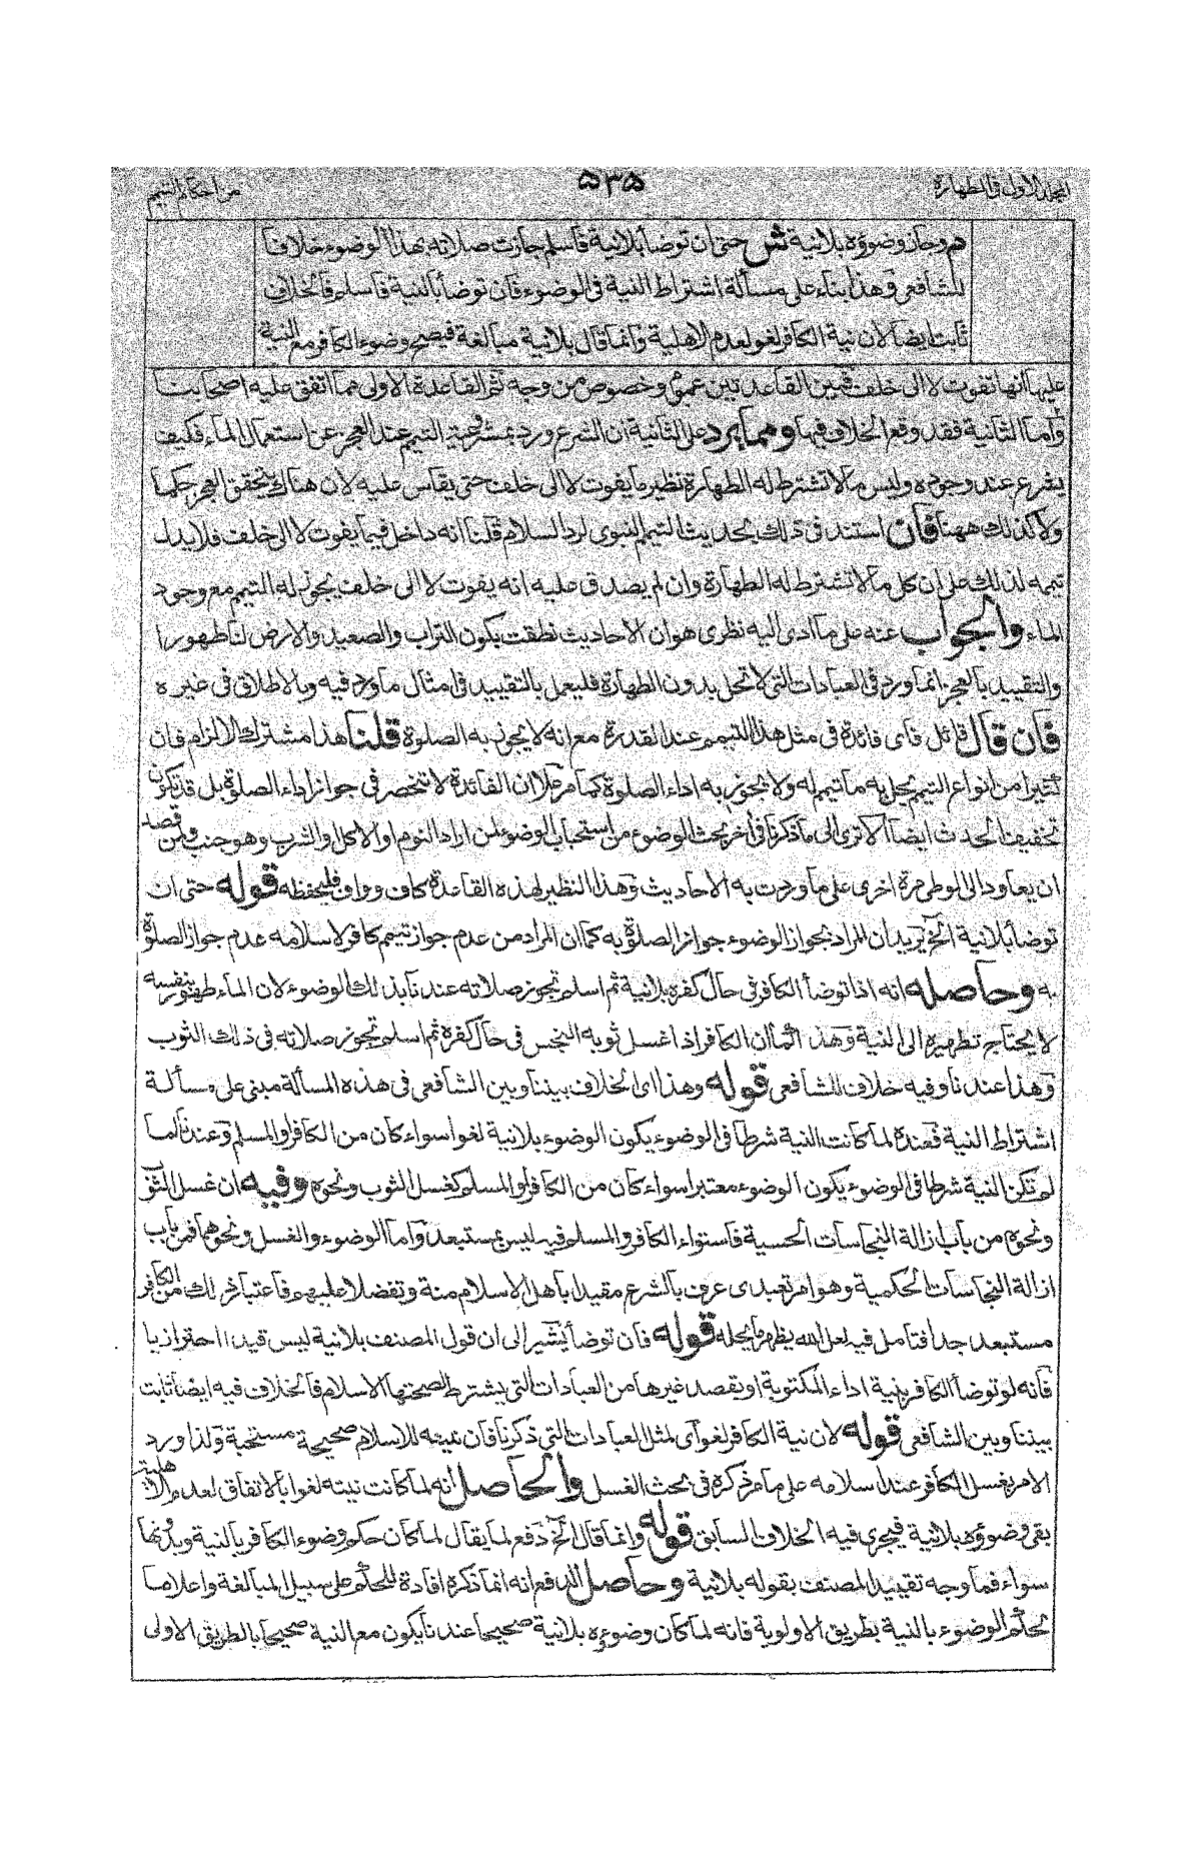 المجلد الاول فى الطهارة ٥٣٥ من احكام التيمم
م وجاز وضوؤه بلا نية ش حتى ان توضأ بلا نية فاسلم جازت صلاته بهذا الوضوء خلافا
للشافعى وهذا بناء على مسألة اشتراط النية فى الوضوء فان توضأ بالنية فاسلم فالخلاف
ثابت ايضا لان نية الكافر لغو لعدم الاهلية وانما قال بلا نية مبالغة فيصح وضوء الكافر مع النية
عليها انها تفوت لا الى خلف فبين القاعدتين عموم وخصوص من وجه ثم القاعدة الاولى مما اتفق عليه اصحابنا
واما الثانية فقد وقع الخلاف فيها ومما يرد على الثانية ان الشرع ورد بمشروعية التيمم عند العجز عن استعمال الماء فكيف
يشرع عند وجوده وليس ما لا تشترط له الطهارة نظير ما يفوت لا الى خلف حتى يقاس عليه لان هناك يتحقق العجز حكما
ولا كذلك ههنا فان استند فى ذلك بحديث التيمم النبوى لرد السلام قلنا انه داخل فيما يفوت لا الى خلف فلا يدل
تيممه لذلك على ان كل ما لا تشترط له الطهارة وان لم يصدق عليه انه يفوت لا الى خلف يجوز له التيمم مع وجود
الماء والجواب عنه على ما ادى اليه نظرى هو ان الاحاديث نطقت بكون التراب والصعيد والارض لنا طهورا
والتقييد بالعجز انما ورد فى العبادات التى لا تحل بدون الطهارة فليعمل بالتقييد فى امثال ما ورد فيه وبالاطلاق فى غيره
فان قال قائل فاى فائدة فى مثل هذا التيمم عند القدرة مع انه لا يجوز به الصلوة قلنا هذا مشترك الالزام فان
كثيرا من انواع التيمم يحل به ما تيمم له ولا يجوز به اداء الصلوة كما مر علا ان الفائدة لا تنحصر فى جواز اداء الصلوة بل قد تكون
تخفيف الحدث ايضا الا ترى الى ما ذكرنا فى اخر بحث الوضوء من استحباب الوضوء لمن اراد النوم او الاكل والشرب وهو جنب ولمن قصد
ان يعاود الى الوطى مرة اخرى على ما وردت به الاحاديث وهذا النظير لهذه القاعدة كاف وواف فليحفظه قوله حتى ان
توضأ بلا نية الخ يريد ان المراد بجواز الوضوء جواز الصلوة به كما ان المراد من عدم جواز تيمم كافر لاسلامه عدم جواز الصلوة
به وحاصله انه اذا توضأ الكافر فى حال كفره بلا نية ثم اسلم تجوز صلاته عندنا بذلك الوضوء لان الماء طهور بنفسه
لا يحتاج تطهيره الى النية وهذا كما ان الكافر اذا غسل ثوبه النجس فى حال كفره ثم اسلم تجوز صلاته فى ذلك الثوب
وهذا عندنا وفيه خلاف للشافعى قوله وهذا اى الخلاف بيننا وبين الشافعى فى هذه المسألة مبنى على مسألة
اشتراط النية فعنده لما كانت النية شرطا فى الوضوء يكون الوضوء بلا نية لغوا سواء كان من الكافر او المسلم وعندنا لما
لم تكن النية شرطا فى الوضوء يكون الوضوء معتبرا سواء كان من الكافر او المسلم كغسل الثوب ونحوه وفيه ان غسل الثوب
ونحوه من باب ازالة النجاسات الحسية فاستواء الكافر والمسلم فيه ليس بمستبعد واما الوضوء والغسل ونحوهما فمن باب
ازالة النجاسات الحكمية وهو امر تعبدى عرف بالشرع مقيدا باهل الاسلام منة وتفضلا عليهم فاعتبار ذلك من الكافر
مستبعد جدا فتامل فيه لعل الله يظهر ما يحله قوله فان توضأ يشير الى ان قول المصنف بلا نية ليس قيدا احترازيا
فانه لو توضأ الكافر بنية اداء المكتوبة او بقصد غيرها من العبادات التى يشترط لصحتها الاسلام فالخلاف فيه ايضا ثابت
بيننا وبين الشافعى قوله لان نية الكافر لغو اى لمثل العبادات التى ذكرنا فان نيته للاسلام صحيحة مستحبة ولذا ورد
الامر بغسل الكافر عند اسلامه على ما مر ذكره فى بحث الغسل والحاصل انه لما كانت نيته لغوا بالاتفاق لعدم الاهلية
بقى وضوؤه بلا نية فيجرى فيه الخلاف السابق قوله وانما قال الخ دفع لما يقال لما كان حكم وضوء الكافر بالنية وبدونها
سواء فما وجه تقييد المصنف بقوله بلا نية وحاصل الدفع انه انما ذكره افادة للحكم على سبيل المبالغة واعلاما
لحكم الوضوء بالنية بطريق الاولوية فانه لما كان وضوءه بلا نية صحيحا عندنا يكون مع النية صحيحا بالطريق الاولى